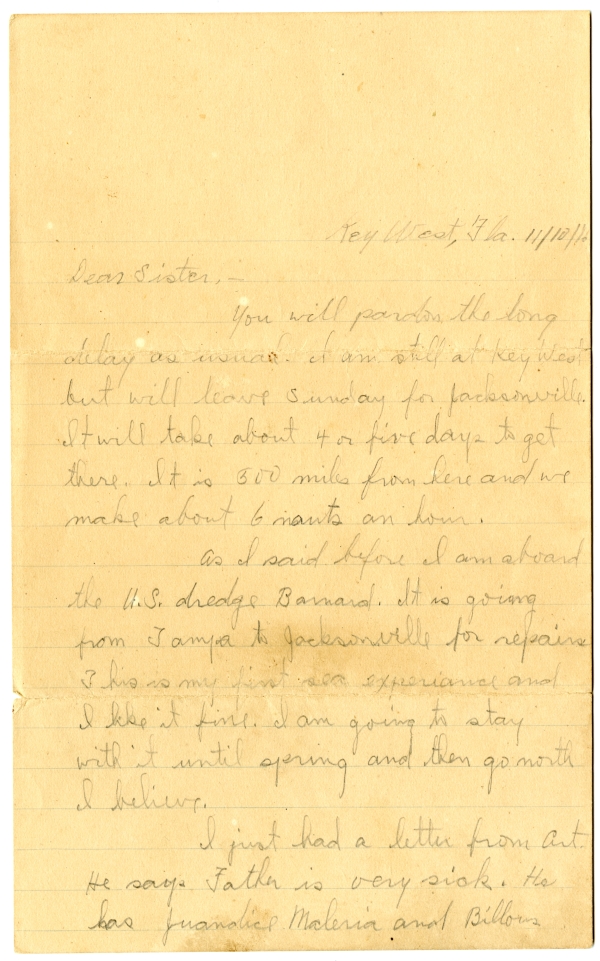 Key West, Fla. 11/10/
Dear Sister. –
You will pardon the long
delay as usual. I am still at Key West
but will leave Sunday for Jacksonville.
It will take about 4 or five days to get
there. It is 500 miles from here and we
make about 6 nauts an hour.
As I said before I am aboard
the U.S. dredge Barnard. It is going
from Tampa to Jacksonville for repairs
This is my first sea experiance and
I like it fine. I am going to stay
with it until spring and then go north
I believe.
I just had a letter from Art.
He says Father is very sick. He
has Juandice Maleria and Billous